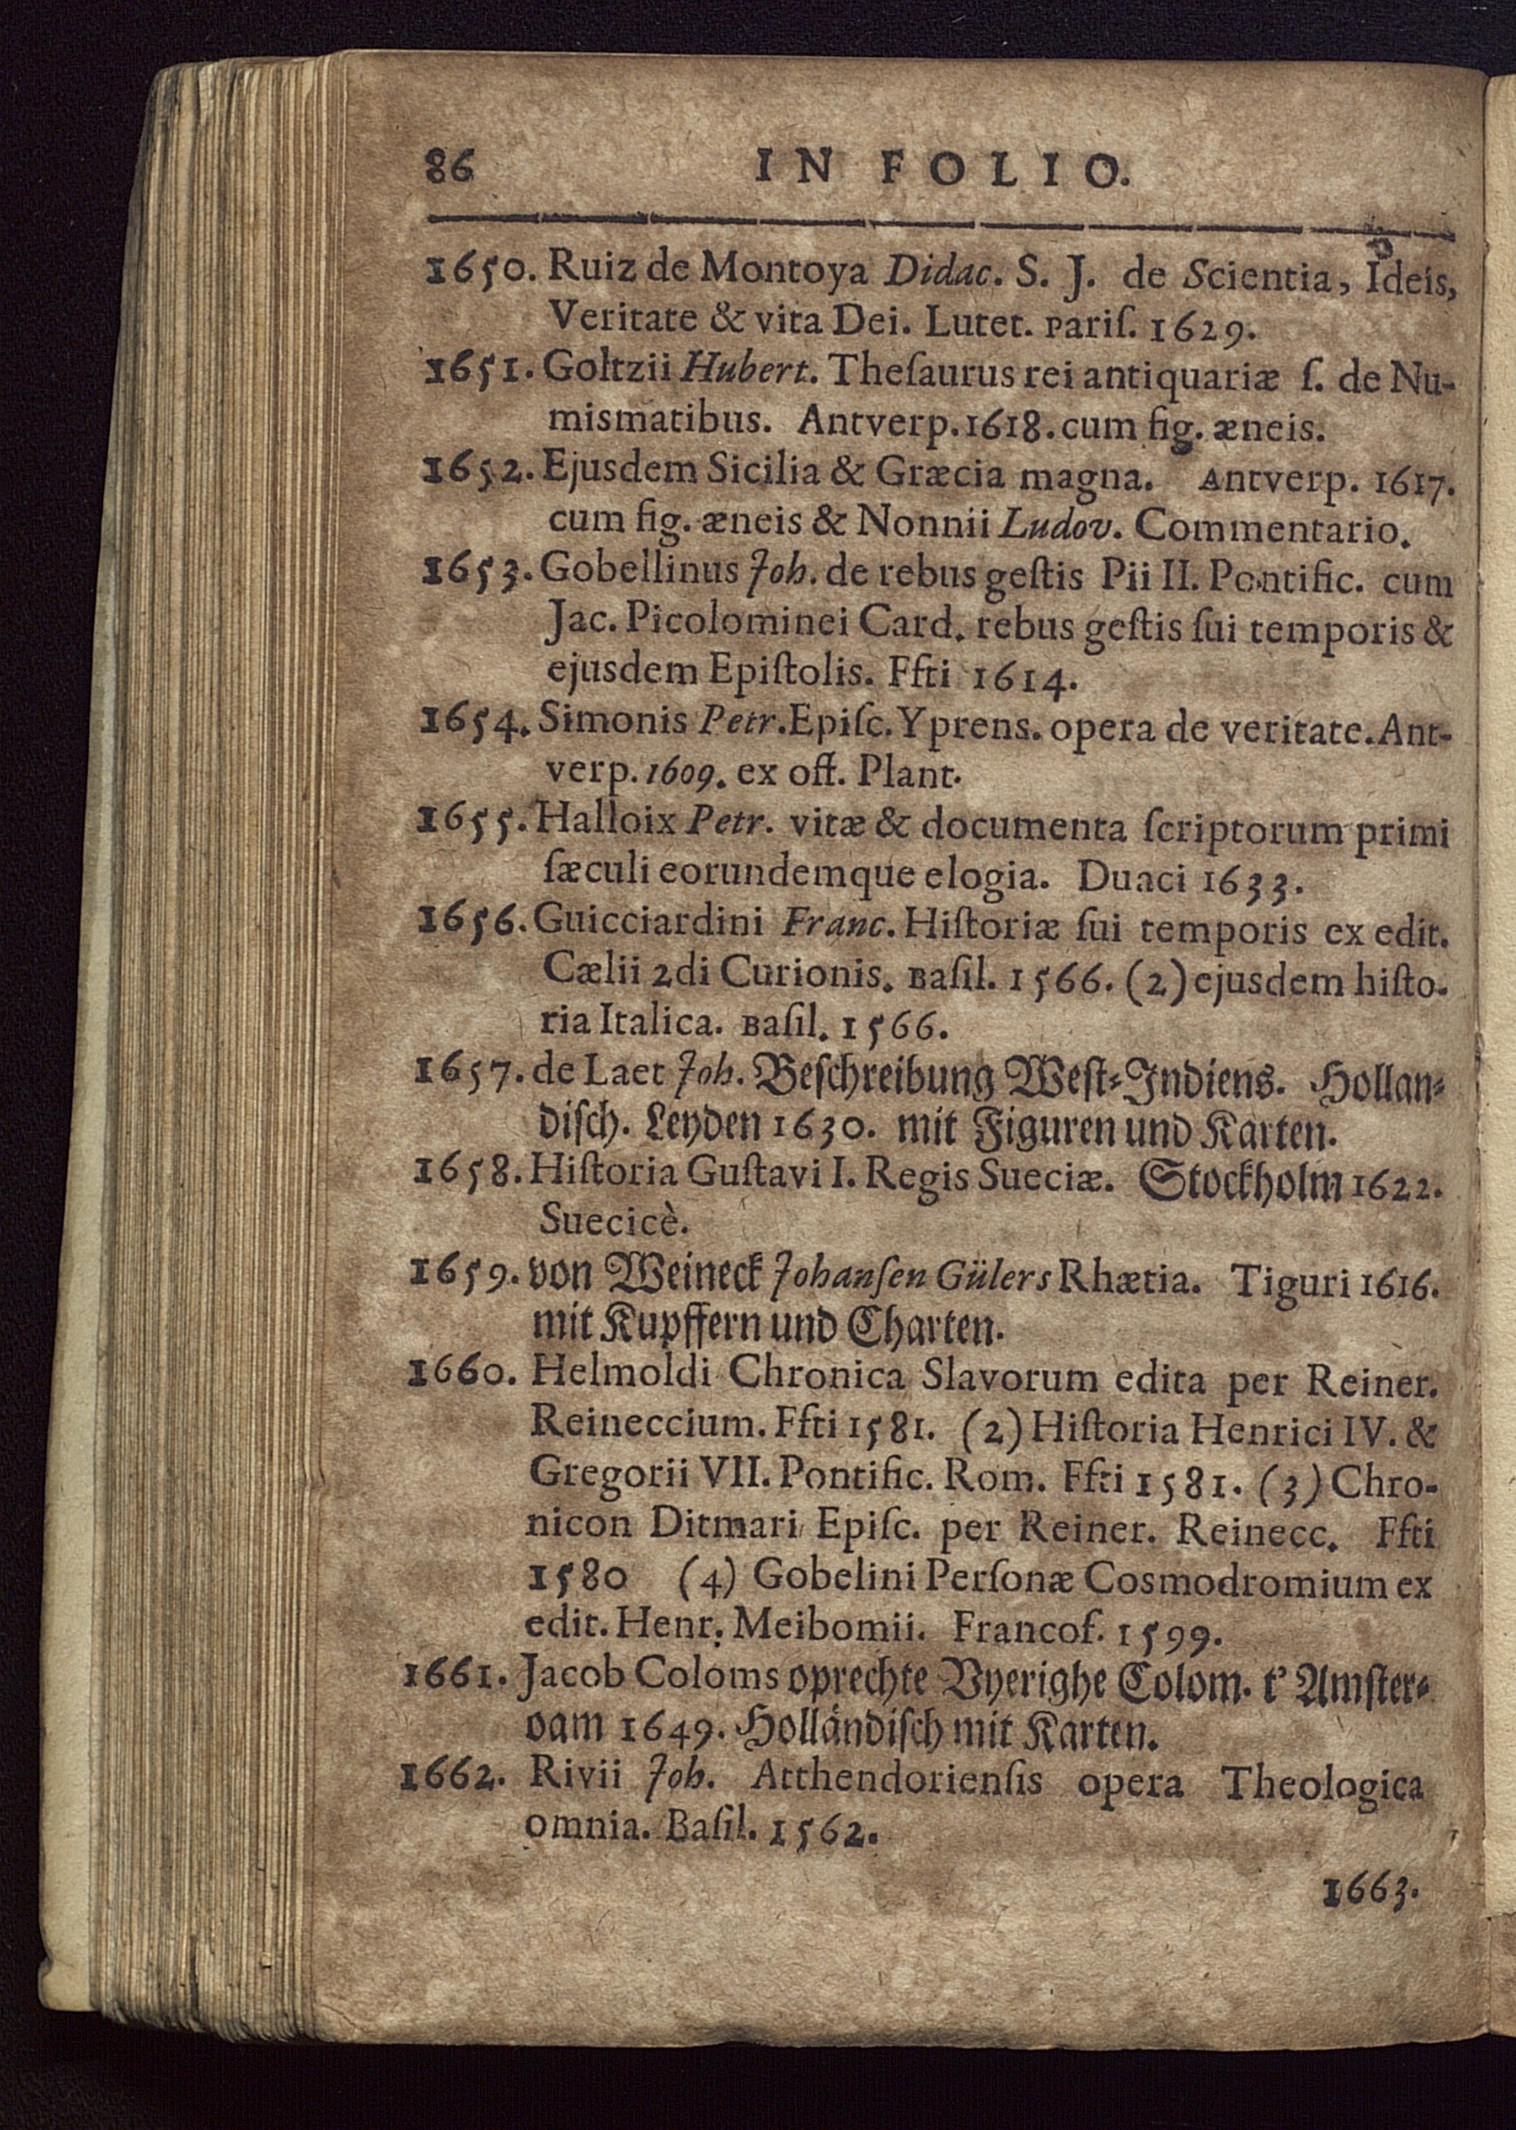 86 IN FOLIO.
1650. Ruiz de Montoya Didac. S. J. de Scientia, Ideis,
Veritate & vita Dei. Lutet. Pariſ. 1629.
1651. Goltzii Hubert. Theſaurus rei antiquariæ ſ. de Nu-
mismatibus. Antverp. 1618. cum fig. æneis.
1652. Ejusdem Sicilia & Græcia magna. Antverp. 1617.
cum fig. æneis & Nonnii Ludov. Commentario.
1653. Gobellinus Joh. de rebus geſtis Pii II. Pontific. cum
Jac. Picolominei Card. rebus geſtis ſui temporis &
ejusdem Epiſtolis. Ffti 1614.
1654. Simonis Petr. Epiſc. Yprens. opera de veritate. Ant-
verp. 1609. ex off. Plant.
1655. Halloix Petr. vitæ & documenta ſcriptorum primi
ſæculi eorundemque elogia. Duaci 1633.
1656. Guicciardini Franc. Hiſtoriæ ſui temporis ex edit.
Cælii 2di Curionis. Baſil. 1566. (2) ejusdem hiſto-
ria Italica. Baſil. 1566.
1657. de Laet Joh. Beſchreibung Weſt-Indiens. Hollan-
diſch. Leyden 1630. mit Figuren und Karten.
1658. Hiſtoria Guſtavi I. Regis Sueciæ. Stockholm 1622.
Suecicè.
1659. von Weineck Johanſen Gülers Rhætia. Tiguri 1616.
mit Kupffern und Charten.
1660. Helmoldi Chronica Slavorum edita per Reiner.
Reineccium. Ffti 1581. (2) Hiſtoria Henrici IV. &
Gregorii VII. Pontific. Rom. Ffti 1581. (3) Chro-
nicon Ditmari Epiſc. per Reiner. Reinecc. Ffti
1580 (4) Gobelini Perſonæ Cosmodromium ex
edit. Henr. Meibomii. Francof. 1599.
1661. Jacob Coloms oprechte Vyerighe Colom. t' Amſter-
dam 1649. Holländiſch mit Karten.
1662. Rivii Joh. Atthendorienſis opera Theologica
omnia. Baſil. 1562.
1663.